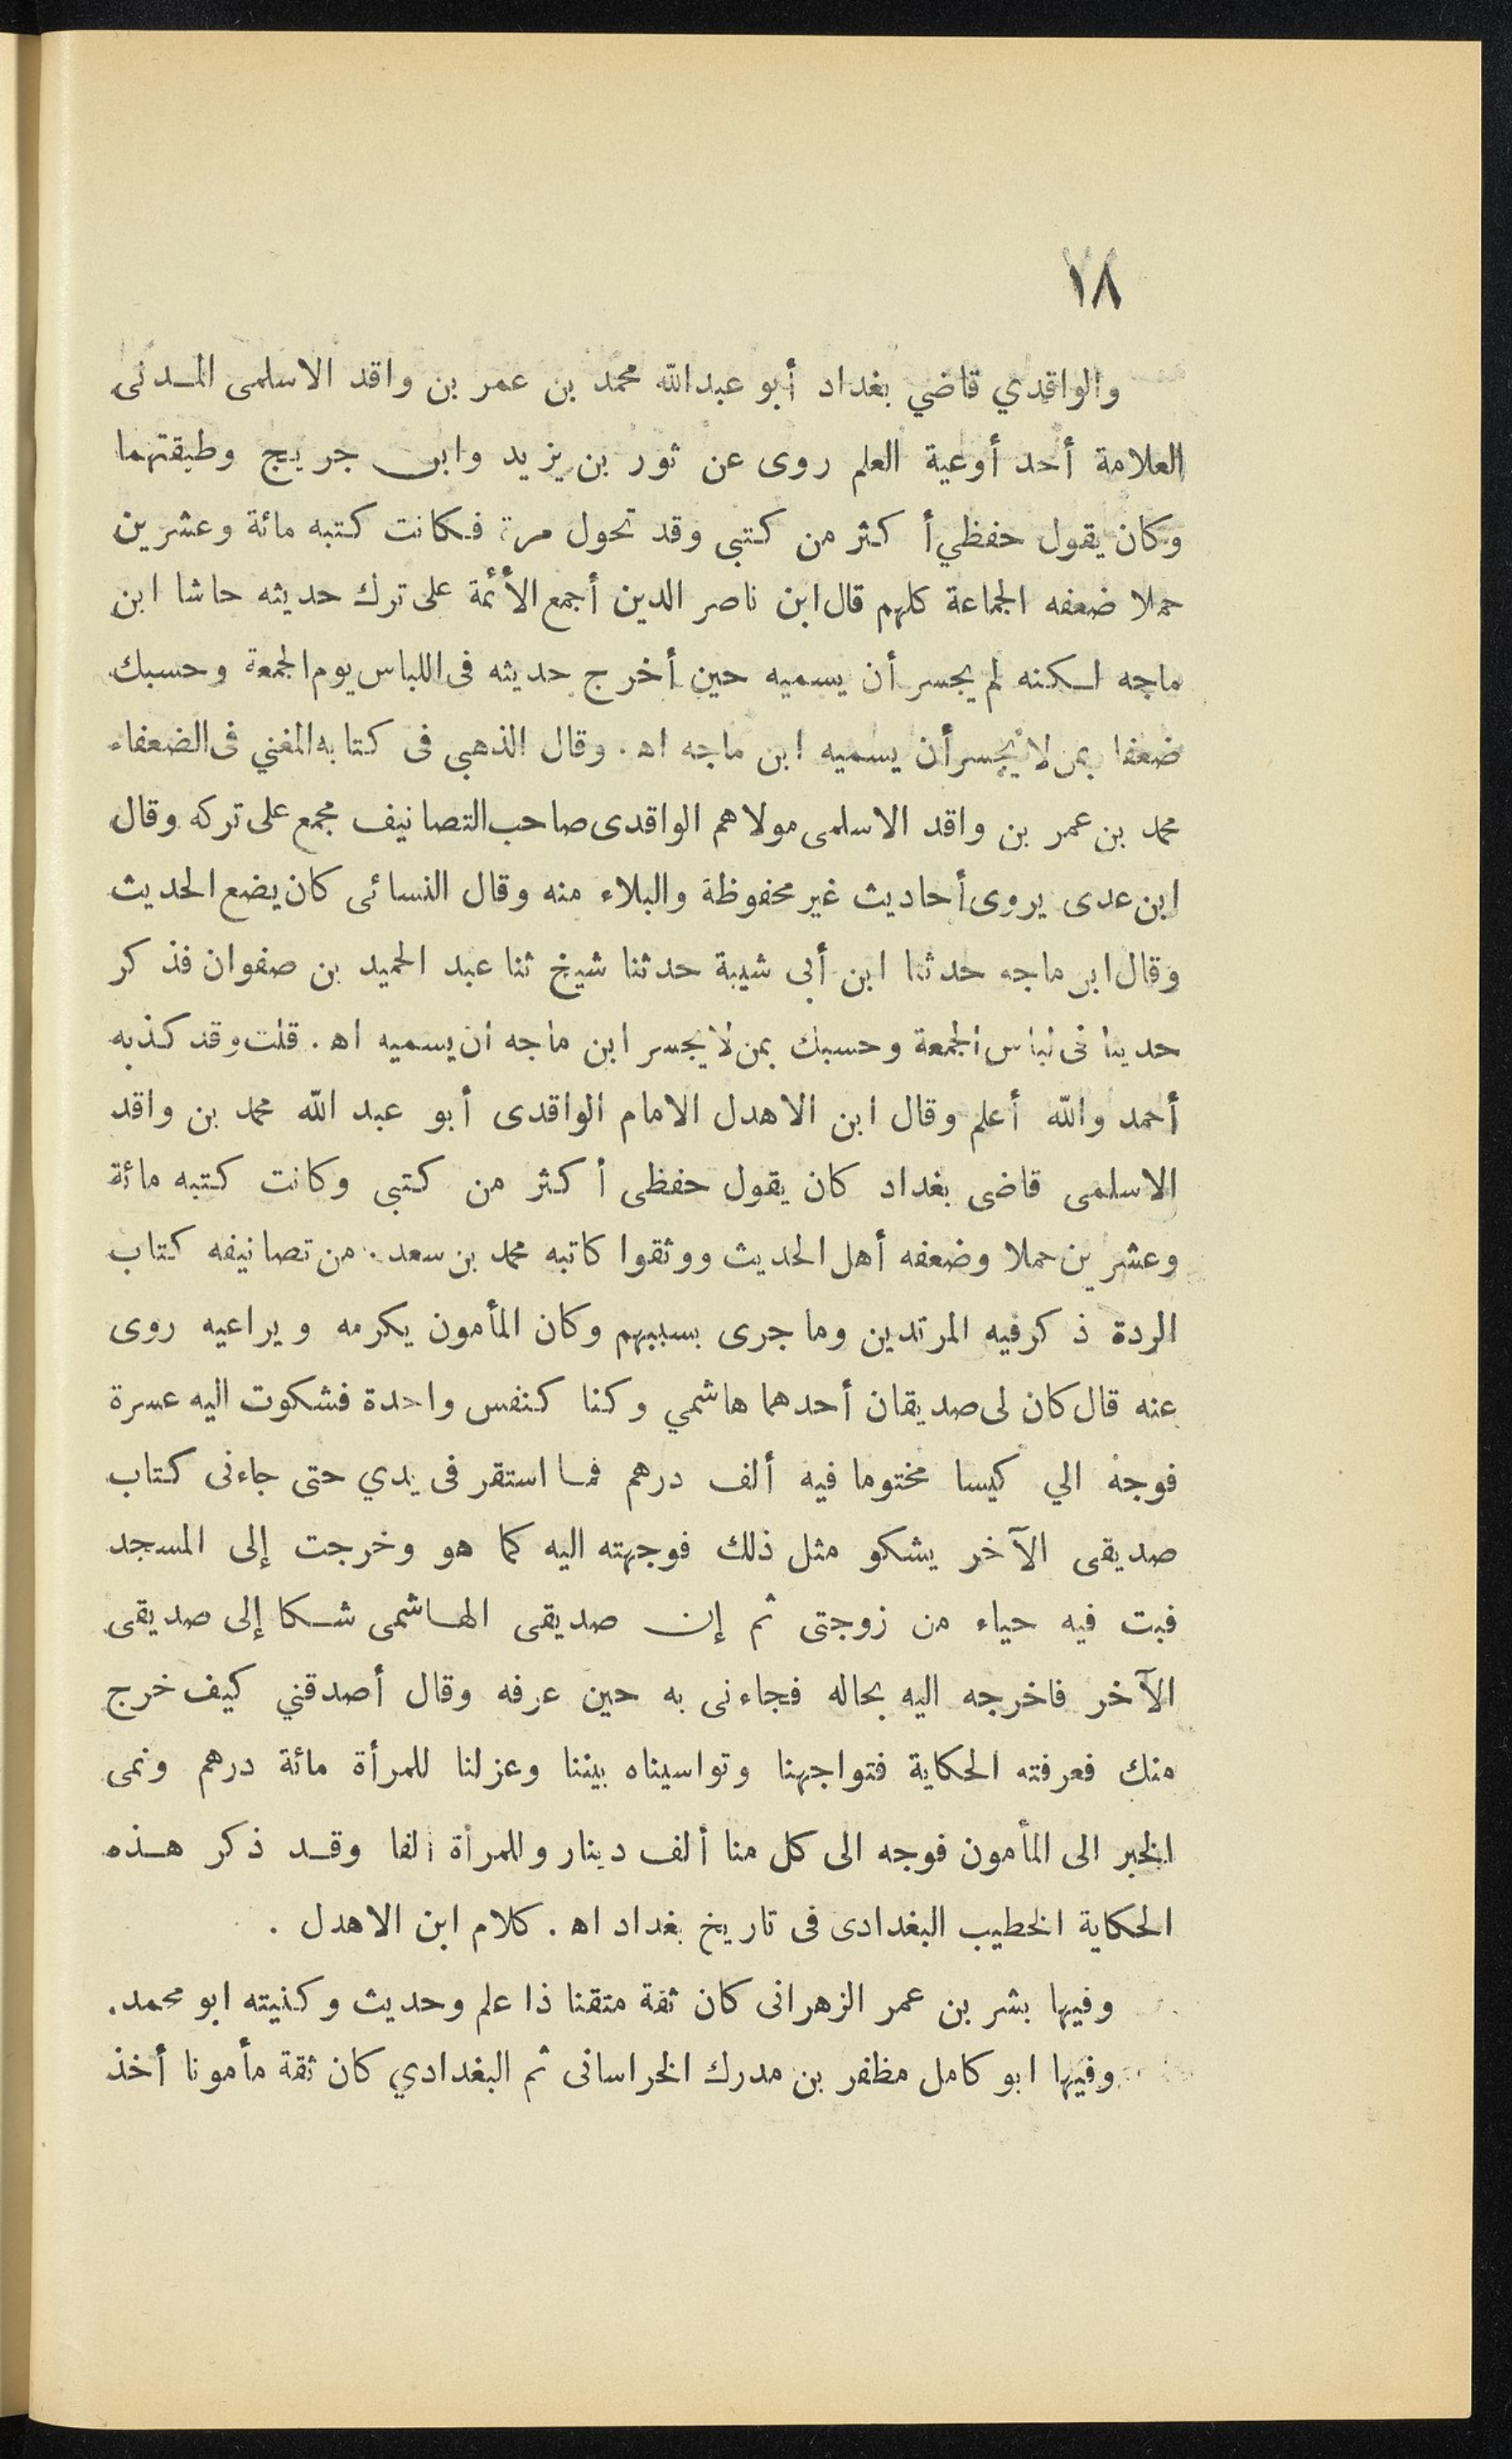 ١٨
والواقدي قاضي بغداد أبو عبدالله محمد بن عمر بن واقد الاسلمى المـدنى
العلامة أحد أوعية العلم روى عن ثور بن يزيد وابن جريج وطبقتهما
وكان يقول حفظي أكثر من كتبى وقد تحول مرة فكانت كتبه مائة وعشرين
حملا ضعفه الجماعة كلهم قال ابن ناصر الدين أجمع الأئمة على ترك حديثه حاشا ابن
ماجه لكنه لم يجسر أن يسميه حين أخرج حديثه فى اللباس يوم الجمعة وحسبك
ضعفا بمن لا يجسر أن يسميه ابن ماجه اه. وقال الذهبى فى كتابه المغني فى الضعفاء
محمد بن عمر بن واقد الاسلمى مولاهم الواقدى صاحب التصانيف مجمع على تركه وقال
ابن عدى يروى أحاديث غير محفوظة والبلاء منه وقال النسائى كان يضع الحديث
وقال ابن ماجه حدثنا ابن أبى شيبة حدثنا شيخ ثنا عبد الحميد بن صفوان فذكر
حديثا فى لباس الجمعة وحسبك بمن لا يجسر ابن ماجه ان يسميه اه. قلت وقد كذبه
أحمد والله أعلم وقال ابن الاهدل الامام الواقدى أبو عبد الله محمد بن واقد
الاسلمى قاضى بغداد كان يقول حفظى أكثر من كتبى وكانت كتبه مائة
وعشرين حملا وضعفه أهل الحديث ووثقوا كاتبه محمد بن سعد. من تصانيفه كتاب
الردة ذكر فيه المرتدين وما جرى بسببهم وكان المأمون يكرمه ويراعيه روى
عنه قال كان لى صديقان أحدهما هاشمي وكنا كنفس واحدة فشكوت اليه عسرة
فوجه الي كيسا مختوما فيه ألف درهم فما استقر فى يدي حتى جاءنى كتاب
صديقى الآخر يشكو مثل ذلك فوجهته اليه كما هو وخرجت إلى المسجد
فبت فيه حياء من زوجتى ثم إن صديقى الهاشمى شكا إلى صديقى
الآخر فاخرجه اليه بحاله فجاءنى به حين عرفه وقال أصدقني كيف خرج
منك فعرفته الحكاية فتواجهنا وتواسيناه بيننا وعزلنا للمرأة مائة درهم ونمى
الخبر الى المأمون فوجه الى كل منا ألف دينار وللمرأة ألفا وقـد ذكر هـذه
الحكاية الخطيب البغدادى فى تاريخ بغداد اه. كلام ابن الاهدل .
وفيها بشر بن عمر الزهرانى كان ثقة متقنا ذا علم وحديث وكنيته ابو محمد.
وفيها ابو كامل مظفر بن مدرك الخراسانى ثم البغدادي كان ثقة مأمونا أخذ